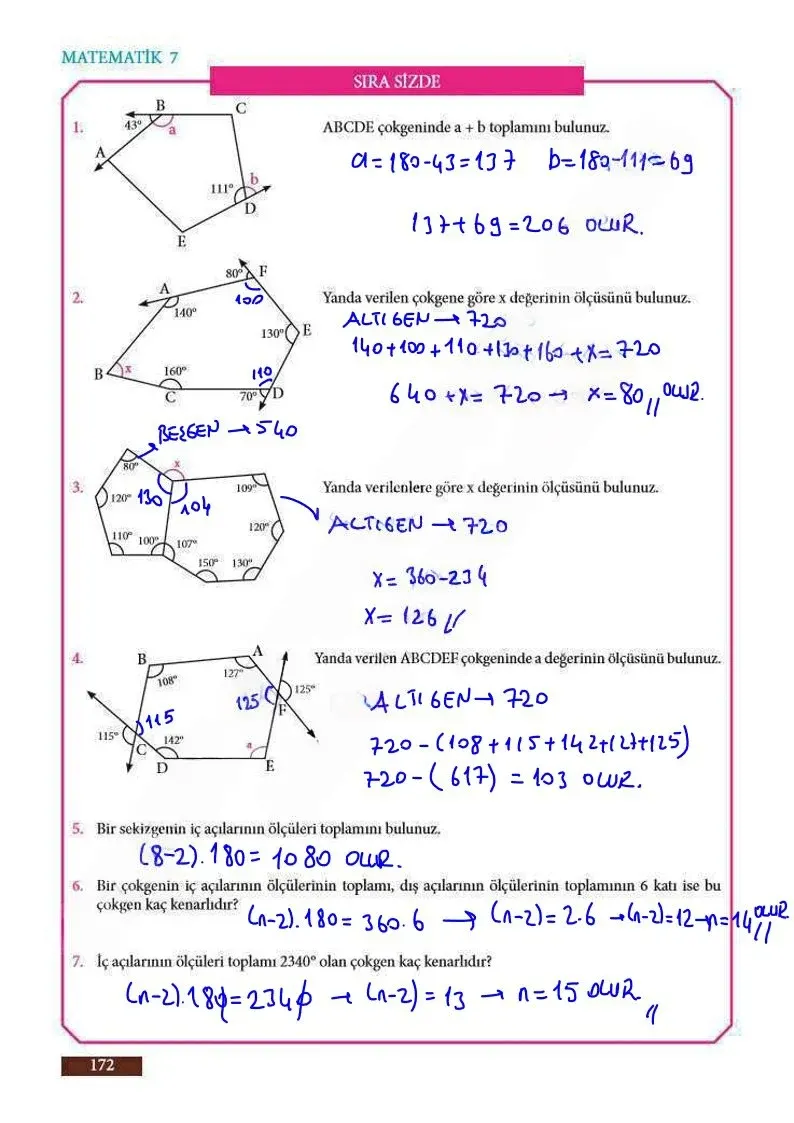 MATEMATİK 7
SIRA SİZDE
1.
B
C
43°
a
A
111°
b
D
E
ABCDE çokgeninde a + b toplamını bulunuz.
a=180-43=137 b=180-111=69
137+69=206 OLUR.
2.
80°
F
A
100
140°
130°
E
B
x
160°
110
C
70°
D
Yanda verilen çokgene göre x değerinin ölçüsünü bulunuz.
ALTIGEN → 720
140+100+110+130+160+x=720
640+x=720 → x=80// OLUR.
BEŞGEN → 540
3.
80°
x
120°
130
104
109°
120°
110°
100°
107°
150°
130°
Yanda verilenlere göre x değerinin ölçüsünü bulunuz.
ALTIGEN → 720
x=360-234
x=126//
4.
B
A
108°
127°
125
125°
F
115
115°
C
142°
a
D
E
Yanda verilen ABCDEF çokgeninde a değerinin ölçüsünü bulunuz.
ALTIGEN → 720
720-(108+115+142+127+125)
720-(617) = 103 OLUR.
5. Bir sekizgenin iç açılarının ölçüleri toplamını bulunuz.
(8-2).180=1080 OLUR.
6. Bir çokgenin iç açılarının ölçülerinin toplamı, dış açılarının ölçülerinin toplamının 6 katı ise bu
çokgen kaç kenarlıdır?
(n-2).180=360.6 → (n-2)=2.6 →(n-2)=12→n=14// OLUR
7. İç açılarının ölçüleri toplamı 2340° olan çokgen kaç kenarlıdır?
(n-2).180=2340 → (n-2)=13 → n=15 OLUR//
172